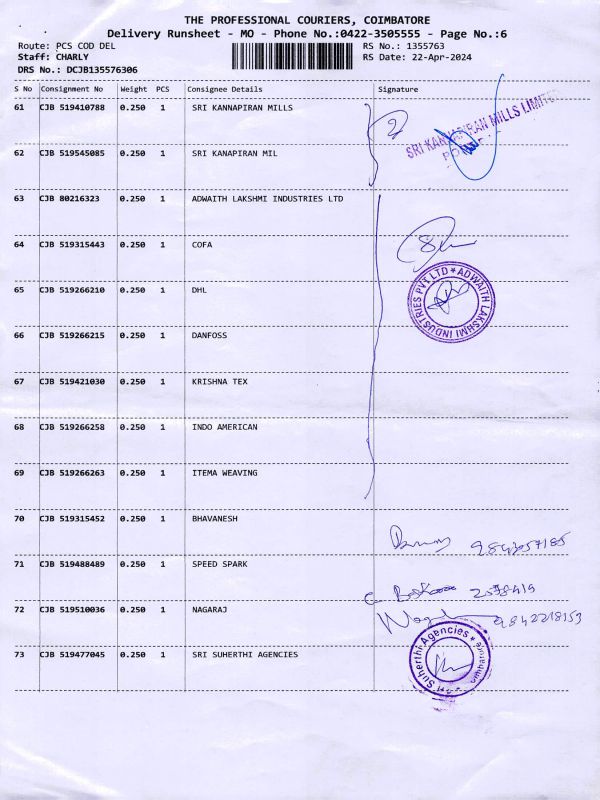 THE PROFESSIONAL COURIERS, COIMBATORE
Delivery Runsheet - MO - Phone No.:0422-3505555 - Page No.:6
Route: PCS COD DEL RS No.: 1355763
Staff: CHARLY RS Date: 22-Apr-2024
DRS No.: DCJB135576306
S No Consignment No Weight PCS Consignee Details Signature
61 CJB 519410788 0.250 1 SRI KANNAPIRAN MILLS
SRI KANNAPIRAN MILLS LIMITED
62 CJB 519545085 0.250 1 SRI KANAPIRAN MIL
63 CJB 80216323 0.250 1 ADWAITH LAKSHMI INDUSTRIES LTD
64 CJB 519315443 0.250 1 COFA
ADWAITH LAKSHMI INDUSTRIES PVT LTD *
65 CJB 519266210 0.250 1 DHL
66 CJB 519266215 0.250 1 DANFOSS
67 CJB 519421030 0.250 1 KRISHNA TEX
68 CJB 519266258 0.250 1 INDO AMERICAN
69 CJB 519266263 0.250 1 ITEMA WEAVING
70 CJB 519315452 0.250 1 BHAVANESH
71 CJB 519488489 0.250 1 SPEED SPARK
72 CJB 519510036 0.250 1 NAGARAJ 9842218153
Sri Suherthi Agencies * Coimbatore *
73 CJB 519477045 0.250 1 SRI SUHERTHI AGENCIES